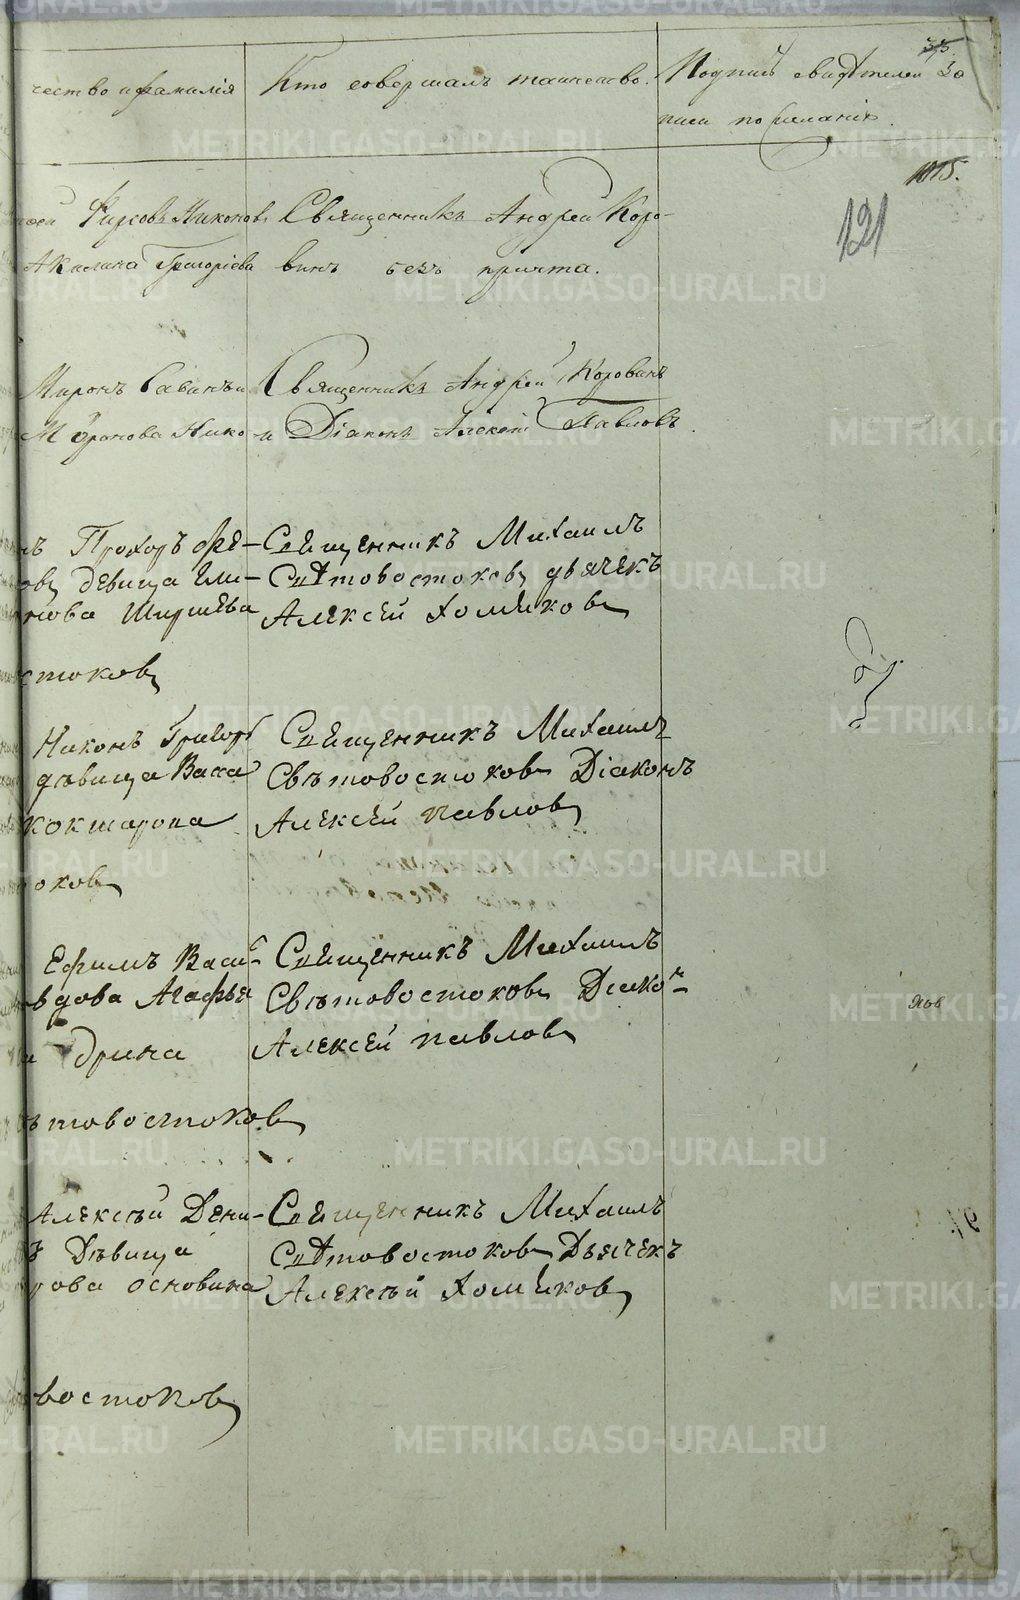 чество и фамилія Кто совершалъ таинство. Подпись свидѣтелей
писи по желанію.
1015.
121
Фирсовъ Никоновъ Священникъ Андрей Коро-
Акилина Григоріева винъ безъ причта.
Миронъ Савинъ и Священникъ Андрей Коровинъ
Миронова Нико- и Діаконъ Алексѣй Павловъ
ъ Прохоръ Фе- Свещенникъ Михаилъ
овъ девица Ели- Свѣтовостоковъ дьячекъ
нова Ширшева Алексей Хомековъ
стоковъ
Никонъ Григорь Свещенникъ Михаилъ
дѣвица Васса Свѣтовостоковъ Діаконъ
кокшарова Алексей павловъ
оковъ
Ефимъ Васи- Свещенникъ Михаилъ
вдова Агафья Свѣтовостоковъ Диако-
дрина Алексей павловъ
ѣтовостоковъ
Алексѣй Дени- Свещенникъ Михаилъ
ъ Дѣвица Свѣтовостоковъ Дьячекъ
рова основина Алексѣй Хомековъ
востоковъ
METRIKI.GASO-URAL.RU